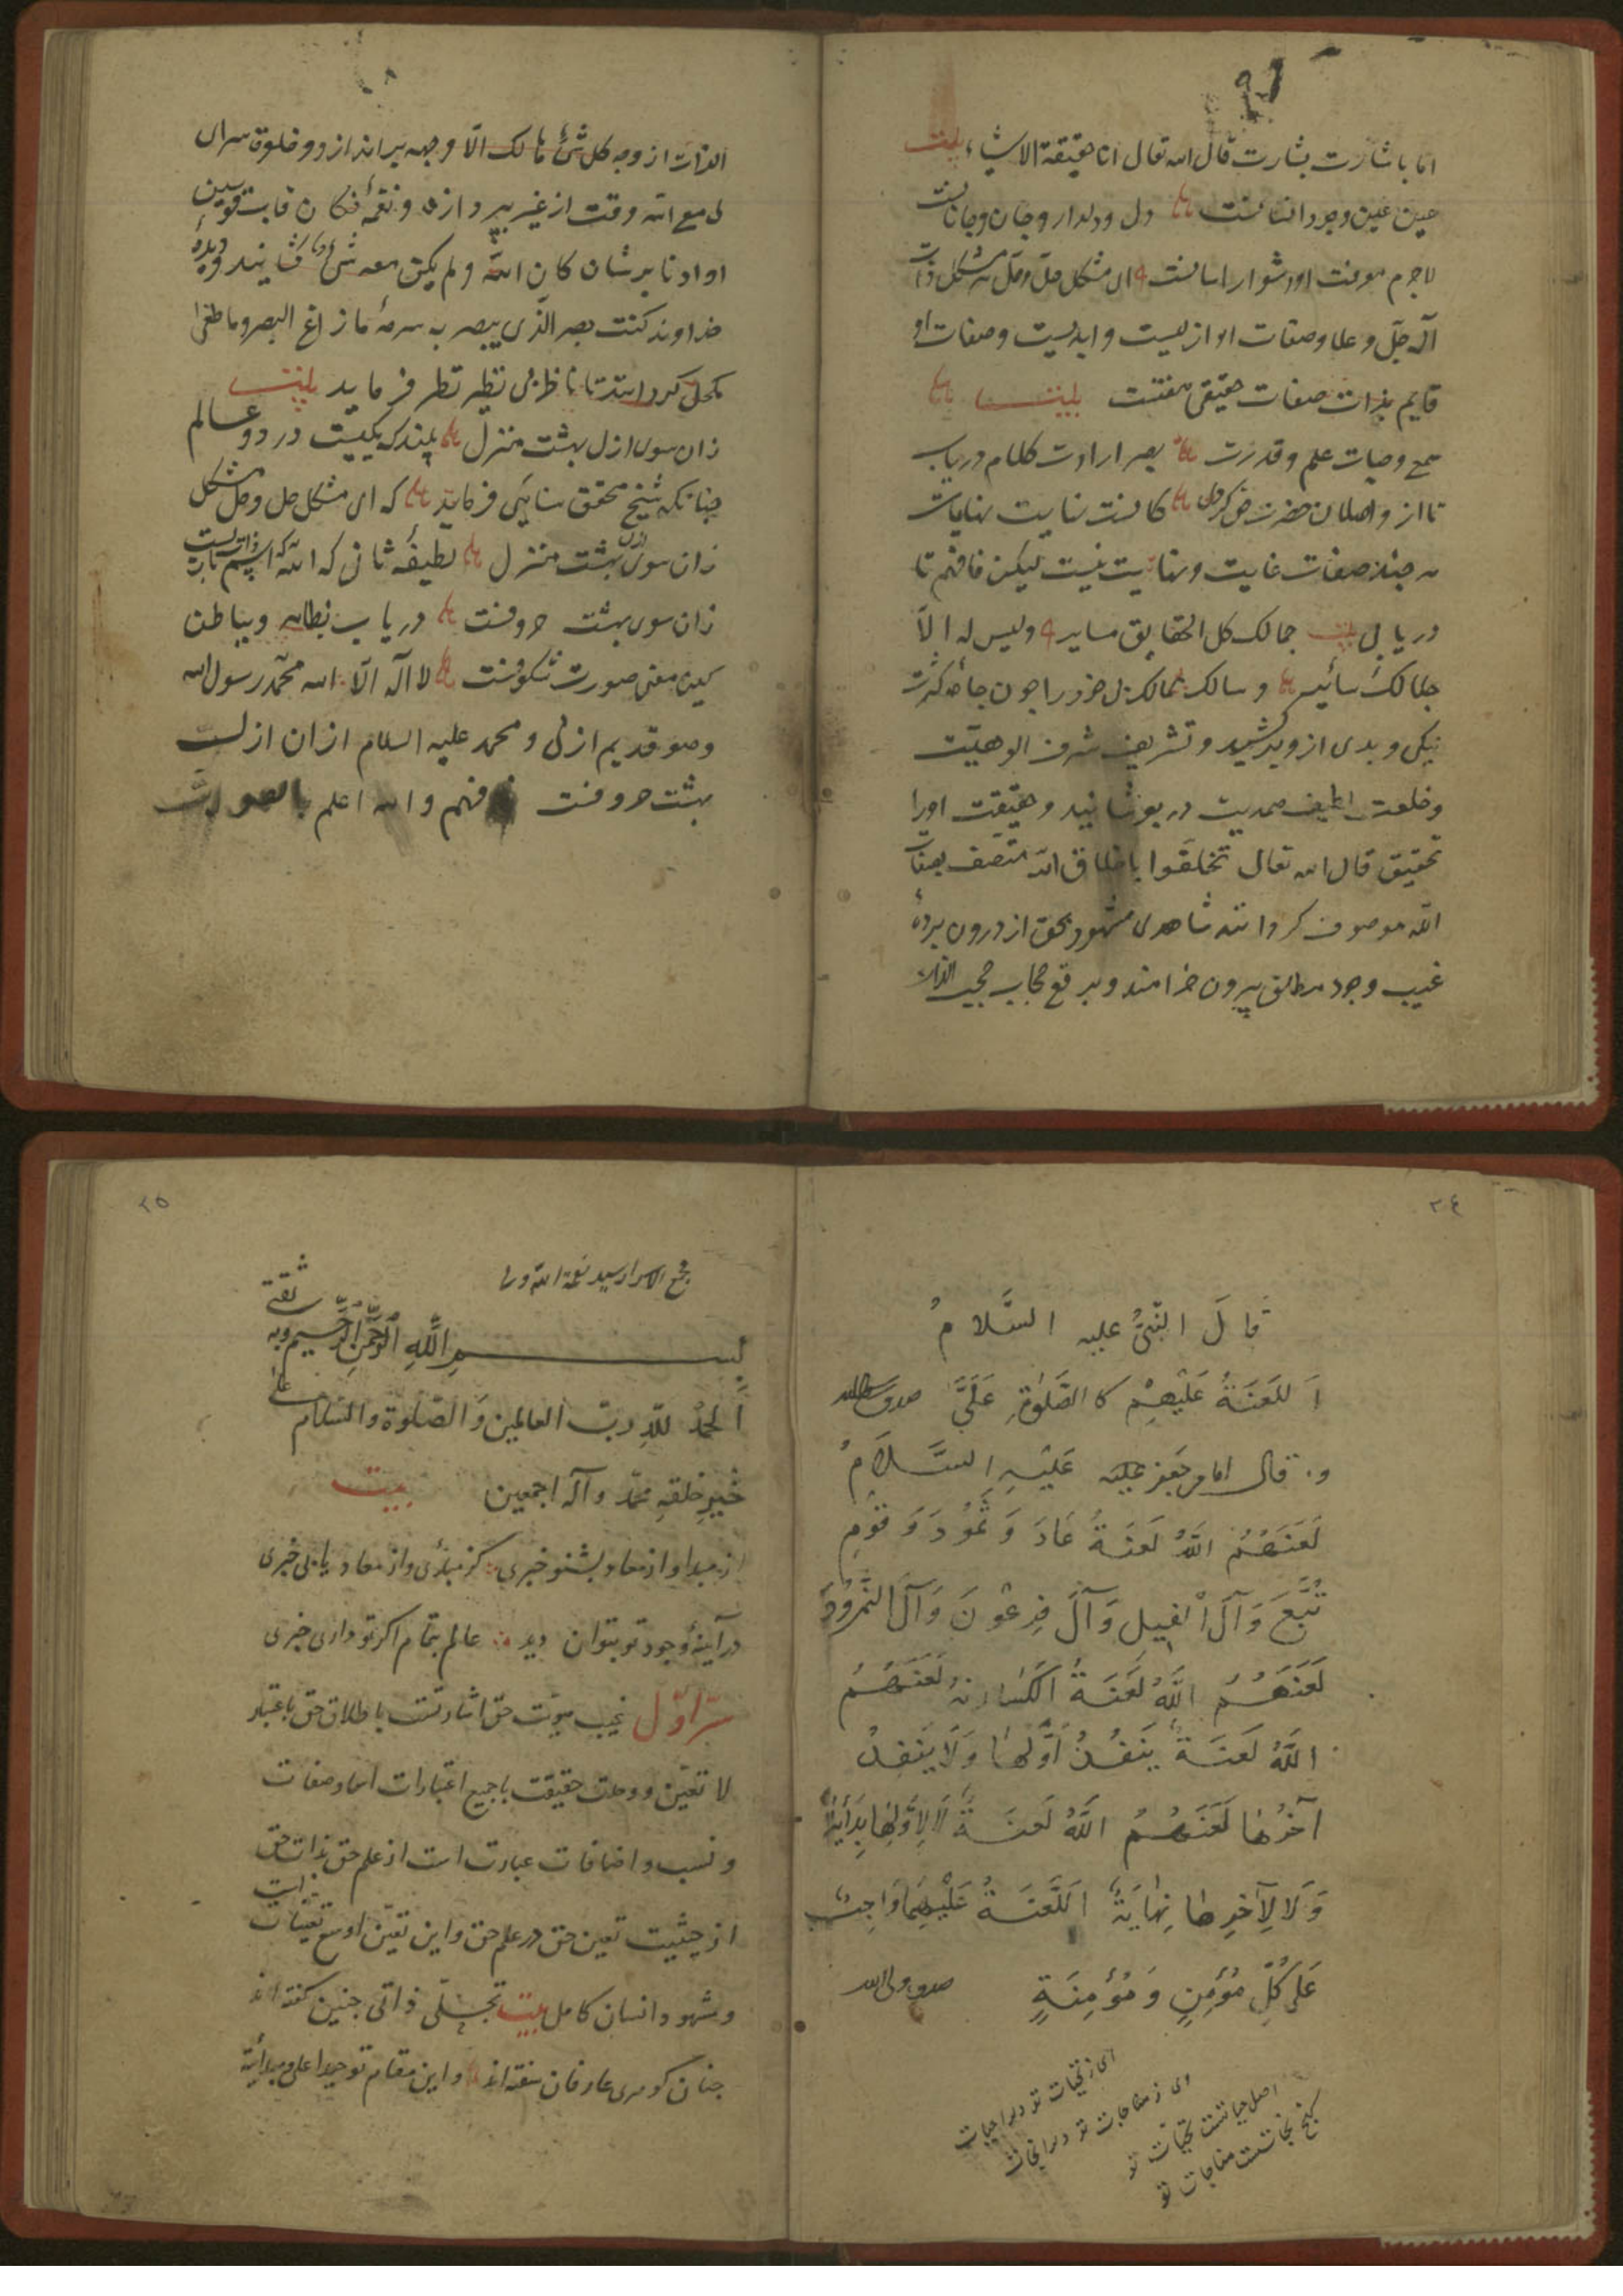 اما باشارت بشارت قال الله تعالی انا حقیقة الاشیاء بیت
عین عین وجود انسانست دل و دلدار و جان و جانانست
لاجرم معرفت او دشوار اسانست ای مشکل حل و حل هر مشکل ذات
اله جل و علا و صفات او ازلیست و ابدیست و صفات او
قایم بذات صفات حقیقی هفتست بیت
سمع و حیات علم و قدرت بصر ارادت کلام دریاب
تا از واصلان حضرت
هر چند صفات غایت و نهایت نیست لیکن فافهم تا
دریابی بیت جمالک کل الحقایق سایر و لیس له الا
جلالک ساتر و سالک ممالک دل خود را چون جامه کثرت
نیکی و بدی از وی برکشید و تشریف شرف الوهیت
و خلعت لطیف صمدیت در پوشانید و حقیقت او را
تحقیق قال الله تعالی تخلقوا باخلاق الله متصف بصفات
الله موصوف کردانند شاهدی مشهود بحق از درون پرده
غیب وجود مطلق بیرون خرامند و برقع حجاب حجب الذات
الذات از وجه کل شئ هالک الا وجهه براندازد و خلوة سرای
لی مع الله وقت از غیر بپردازد و نغمه فکان قاب قوسین
او ادنا برشان کان الله و لم یکن معه شئ
خداوند کنت بصر الذی یبصر به سرمه ما زاغ البصر و ما طغی
مکحل کردانند تا ناظر بی نظیر نظر فرماید بیت
زان سوی ازل بهشت منزل بیند که یکیست در دو عالم
چنانکه شیخ محقق سنایی فرماید که ای مشکل حل و حل مشکل
زان سوی ازل بهشت منزل لطیفهٔ ثانی که الله که اسم ذاتست
زان سوی بهشت حروفست دریاب بظاهر و بباطن
کین معنی صورت شکوفست لا اله الا الله محمد رسول الله
و هو قدیم ازلی و محمد علیه السلام ازان ازلست
بهشت حروفست فافهم والله اعلم بالصواب
۲۴
قَالَ النَّبِیُّ علیه السَّلامُ
اَللَعَنَةُ عَلَیْهِمْ کَا الصَّلٰوةِ عَلَیَّ صدق رسول الله
و قال امام جعفر علیه عَلَیْهِ السَّلَامُ
لَعَنَهُمُ اللهُ لَعَنَةُ عَادَ وَ ثَمُودَ وَ قَوْمِ
تُبَّعَ وَ آلَ اْلفیلِ وَ آلَ فِرعَونَ وَ آلَ النَّمرُودَ
لَعَنَهُمُ اللَّهُ لَعَنَةُ لَعَنَهُمُ
اللَّهُ لَعَنَةً یَنفُدُ اَوَّلُهَا وَ لَا یَنفِدُ
آخِرُهَا لَعَنَهُمُ اللَّهُ لَعَنَةً لَا لِاَوَّلِهَا بِدَایَةٌ
وَ لَا لِآخِرِهَا نِهَایَةٌ اَللَّعَنَةُ عَلَیْهِمَا وَاجِبٌ
عَلٰی کُلِّ مُؤْمِنٍ وَ مُؤْمِنَةٍ صدق ولی الله
ای ز تحیات تو دلرا حیات
وی ز مناجات تو دلرا نجات
اصل حیاتست تحیات تو
کنج نجاتست مناجات تو
۲۵
مجمع الاسرار سید نعمة الله ولی
بسم الله الرحمن الرحیم و به ثقتی
اَلحمدُ للّهِ ربّ العالمین وَ الصّلوة و السّلام علی
خَیرِ خلقهِ محمّد و آله اجمعین بیت
از مبدا و از معاد بشنو خبری کز مبدئی و از معاد یابی خبری
در آینهٔ وجود تو بتوان دید عالم بتمام اکر تو داری خبری
سرّ اوّل غیب هویّت حق اشارتست باطلاق حق باعتبار
لا تعیّن و وحدت حقیقت با جمیع اعتبارات اسما و صفات
و نسب و اضافات عبارت است از علم حق بذات حق
از حیثیت تعین حق در علم حق و این تعیّن اوسع تعیّنات است
و مشهود انسان کامل بیت تجلّی ذاتی چنین کفته اند
چنان کوهری عارفان سفته اند و این مقام توحید اعلی و مبدأیة